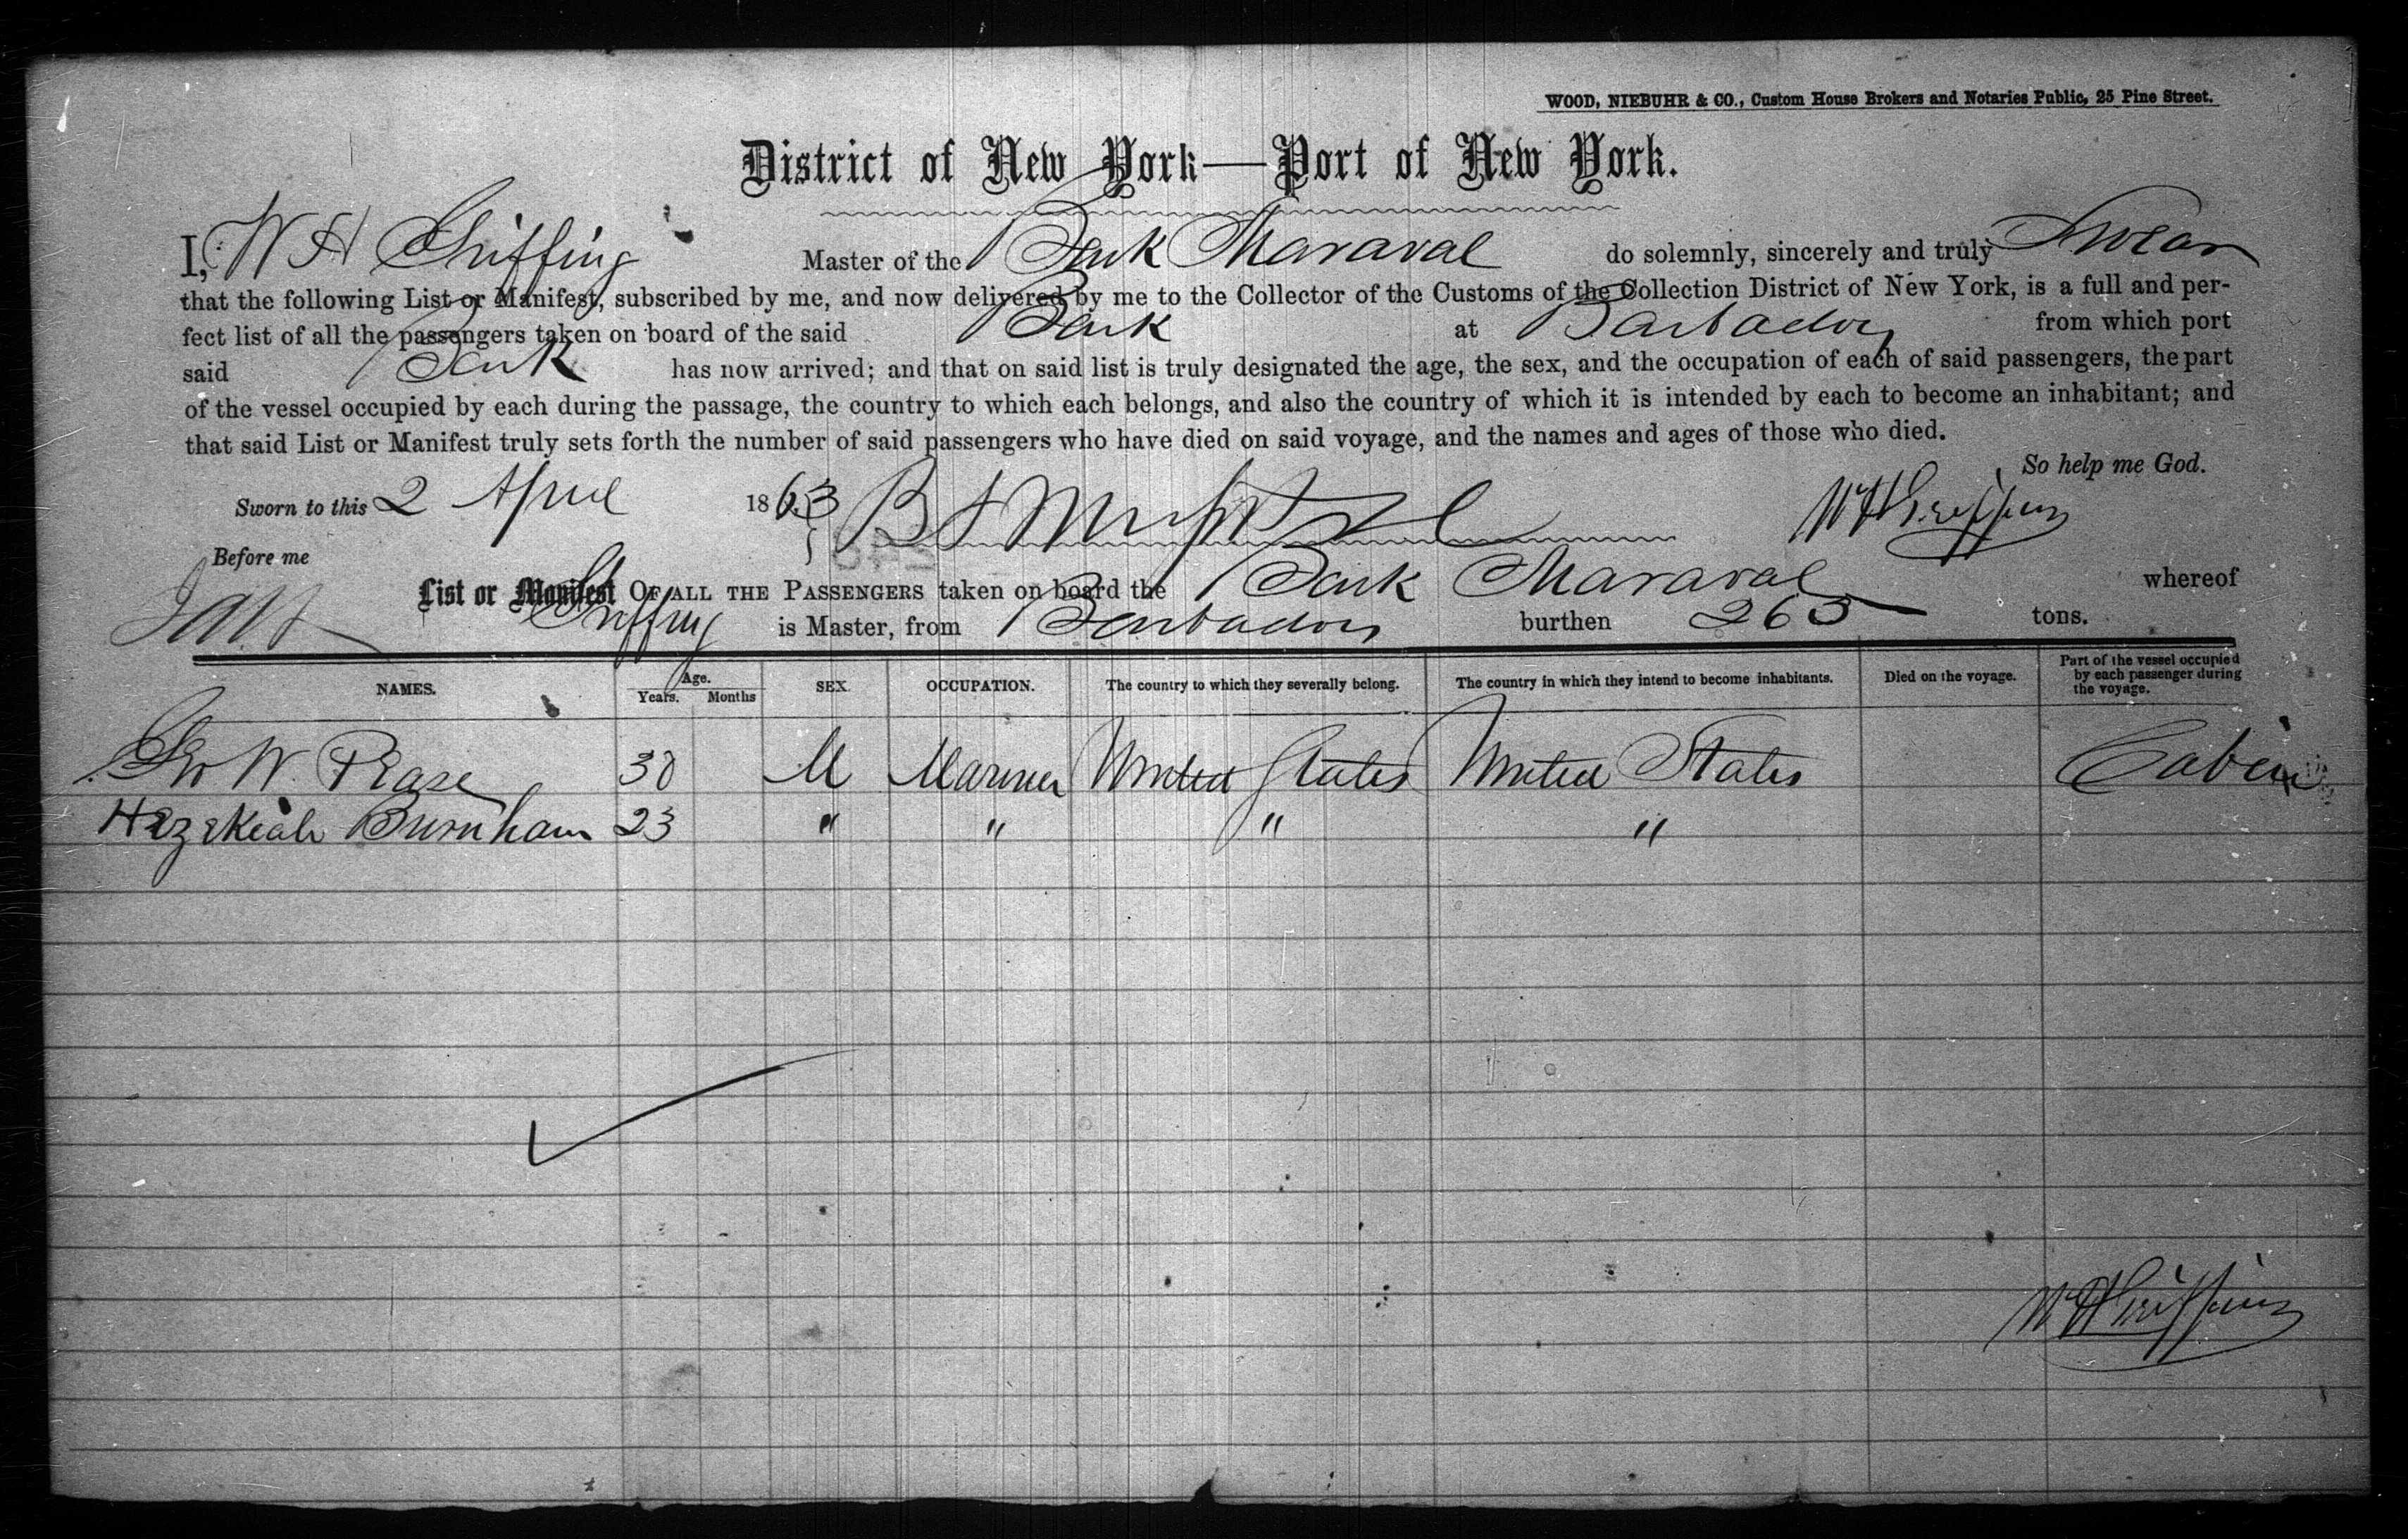 WOOD, NIEBUHR & CO., Custom House Brokers and Notaries Public, 25 Pine Street.
District of New York—Port of New York.
I, W H Griffing Master of the Bark Maraval do solemnly, sincerely and truly Swear
that the following List or Manifest, subscribed by me, and now delivered by me to the Collector of the Customs of the Collection District of New York, is a full and per-
fect list of all the passengers taken on board of the said Bark at Barbados from which port
said Bark has now arrived; and that on said list is truly designated the age, the sex, and the occupation of each of said passengers, the part
of the vessel occupied by each during the passage, the country to which each belongs, and also the country of which it is intended by each to become an inhabitant; and
that said List or Manifest truly sets forth the number of said passengers who have died on said voyage, and the names and ages of those who died.
So help me God.
Sworn to this 2 April 1863 W H Griffing
Before me
List or Manifest OF ALL THE PASSENGERS taken on board the Bark Maraval whereof
Griffing is Master, from Barbados burthen 263 tons.
NAMES. Age. Years. Months SEX. OCCUPATION. The country to which they severally belong. The country in which they intend to become inhabitants. Died on the voyage. Part of the vessel occupied by each passenger during the voyage.
Geo W. Pease 30 M Mariner United States United States Cabin
Hezekiah Burnham 23 " " " "
W H Griffing